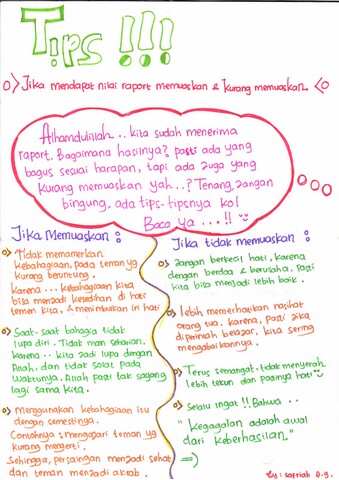 Tips !!!
Jika mendapat nilai raport memuaskan & kurang memuaskan.
Alhamdulillah .. kita sudah menerima
raport. Bagaimana hasilnya? pasti ada yang
bagus sesuai harapan, tapi ada juga yang
kurang memuaskan yah..? Tenang, jangan
bingung, ada tips-tipsnya ko!
Baca ya ...!!
Jika Memuaskan :
Tidak memamerkan
kebahagiaan, pada teman yg
kurang beruntung.
karena ... kebahagiaan kita
bisa menjadi kesedihan di hati
temen kita, & menimbulkan iri hati
Saat-saat bahagia tidak
lupa diri. Tidak man seharian.
karena .. kita jadi lupa dengan
Allah, dan tidak salat pada
waktunya. Allah pasti tak sayang
lagi sama kita.
Menggunakan kebahagiaan itu
dengan semestinya.
Contohnya : mengajari teman yg
kurang mengerti.
Sehingga, persaingan menjadi sehat
dan teman menjadi akrab.
Jika tidak memuaskan :
Jangan berkecil hati, karena
dengan berdoa & berusaha, pasti
kita bisa menjadi lebih baik.
lebih memerhatikan nasihat
orang tua. karena, pasti jika
diperintah belajar, kita sering
mengabaikannya.
Terus semangat. tidak menyerah
lebih tekun dan pastinya hati"
Selalu ingat !! Bahwa ..
"Kegagalan adalah awal
dari keberhasilan."
by : safriah D.g.